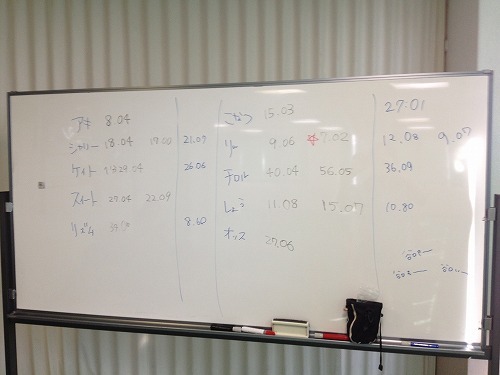 アキ 8.04
シェリー 18.04 19.00 21.07
ケイト 29.04 26.06
スイート 27.04 22.09
リズム 8.60
こなつ 15.03 27.01
リー 9.06 ☆7.02 12.08 9.07
チロル 40.04 56.05 36.09
しょう 11.08 15.07 10.80
オッス 27.06